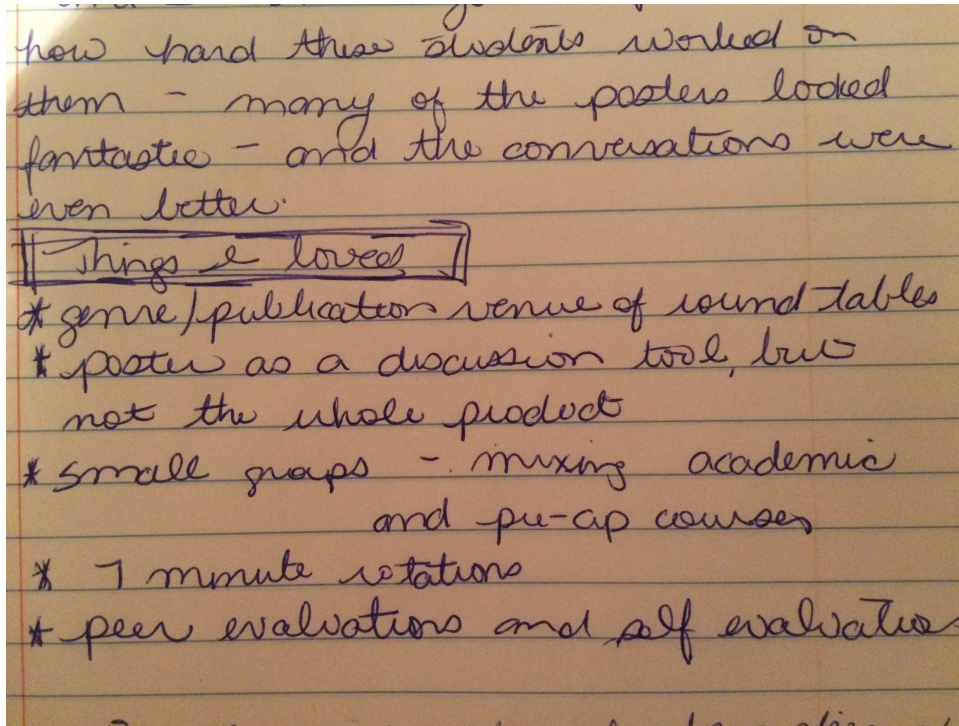 how hard these students worked on
them - many of the posters looked
fantastic - and the conversations were
even better.
Things I loved
* genre/publication venue of round tables
* poster as a discussion tool, but
not the whole product
* small groups - mixing academic
and pre-ap courses
* 7 minute rotations
* peer evaluations and self evaluation